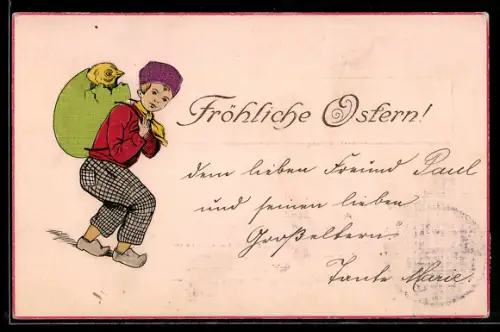 Fröhliche Ostern!
dem lieben Freund Paul
und seinen lieben
Großeltern
Tante Marie.